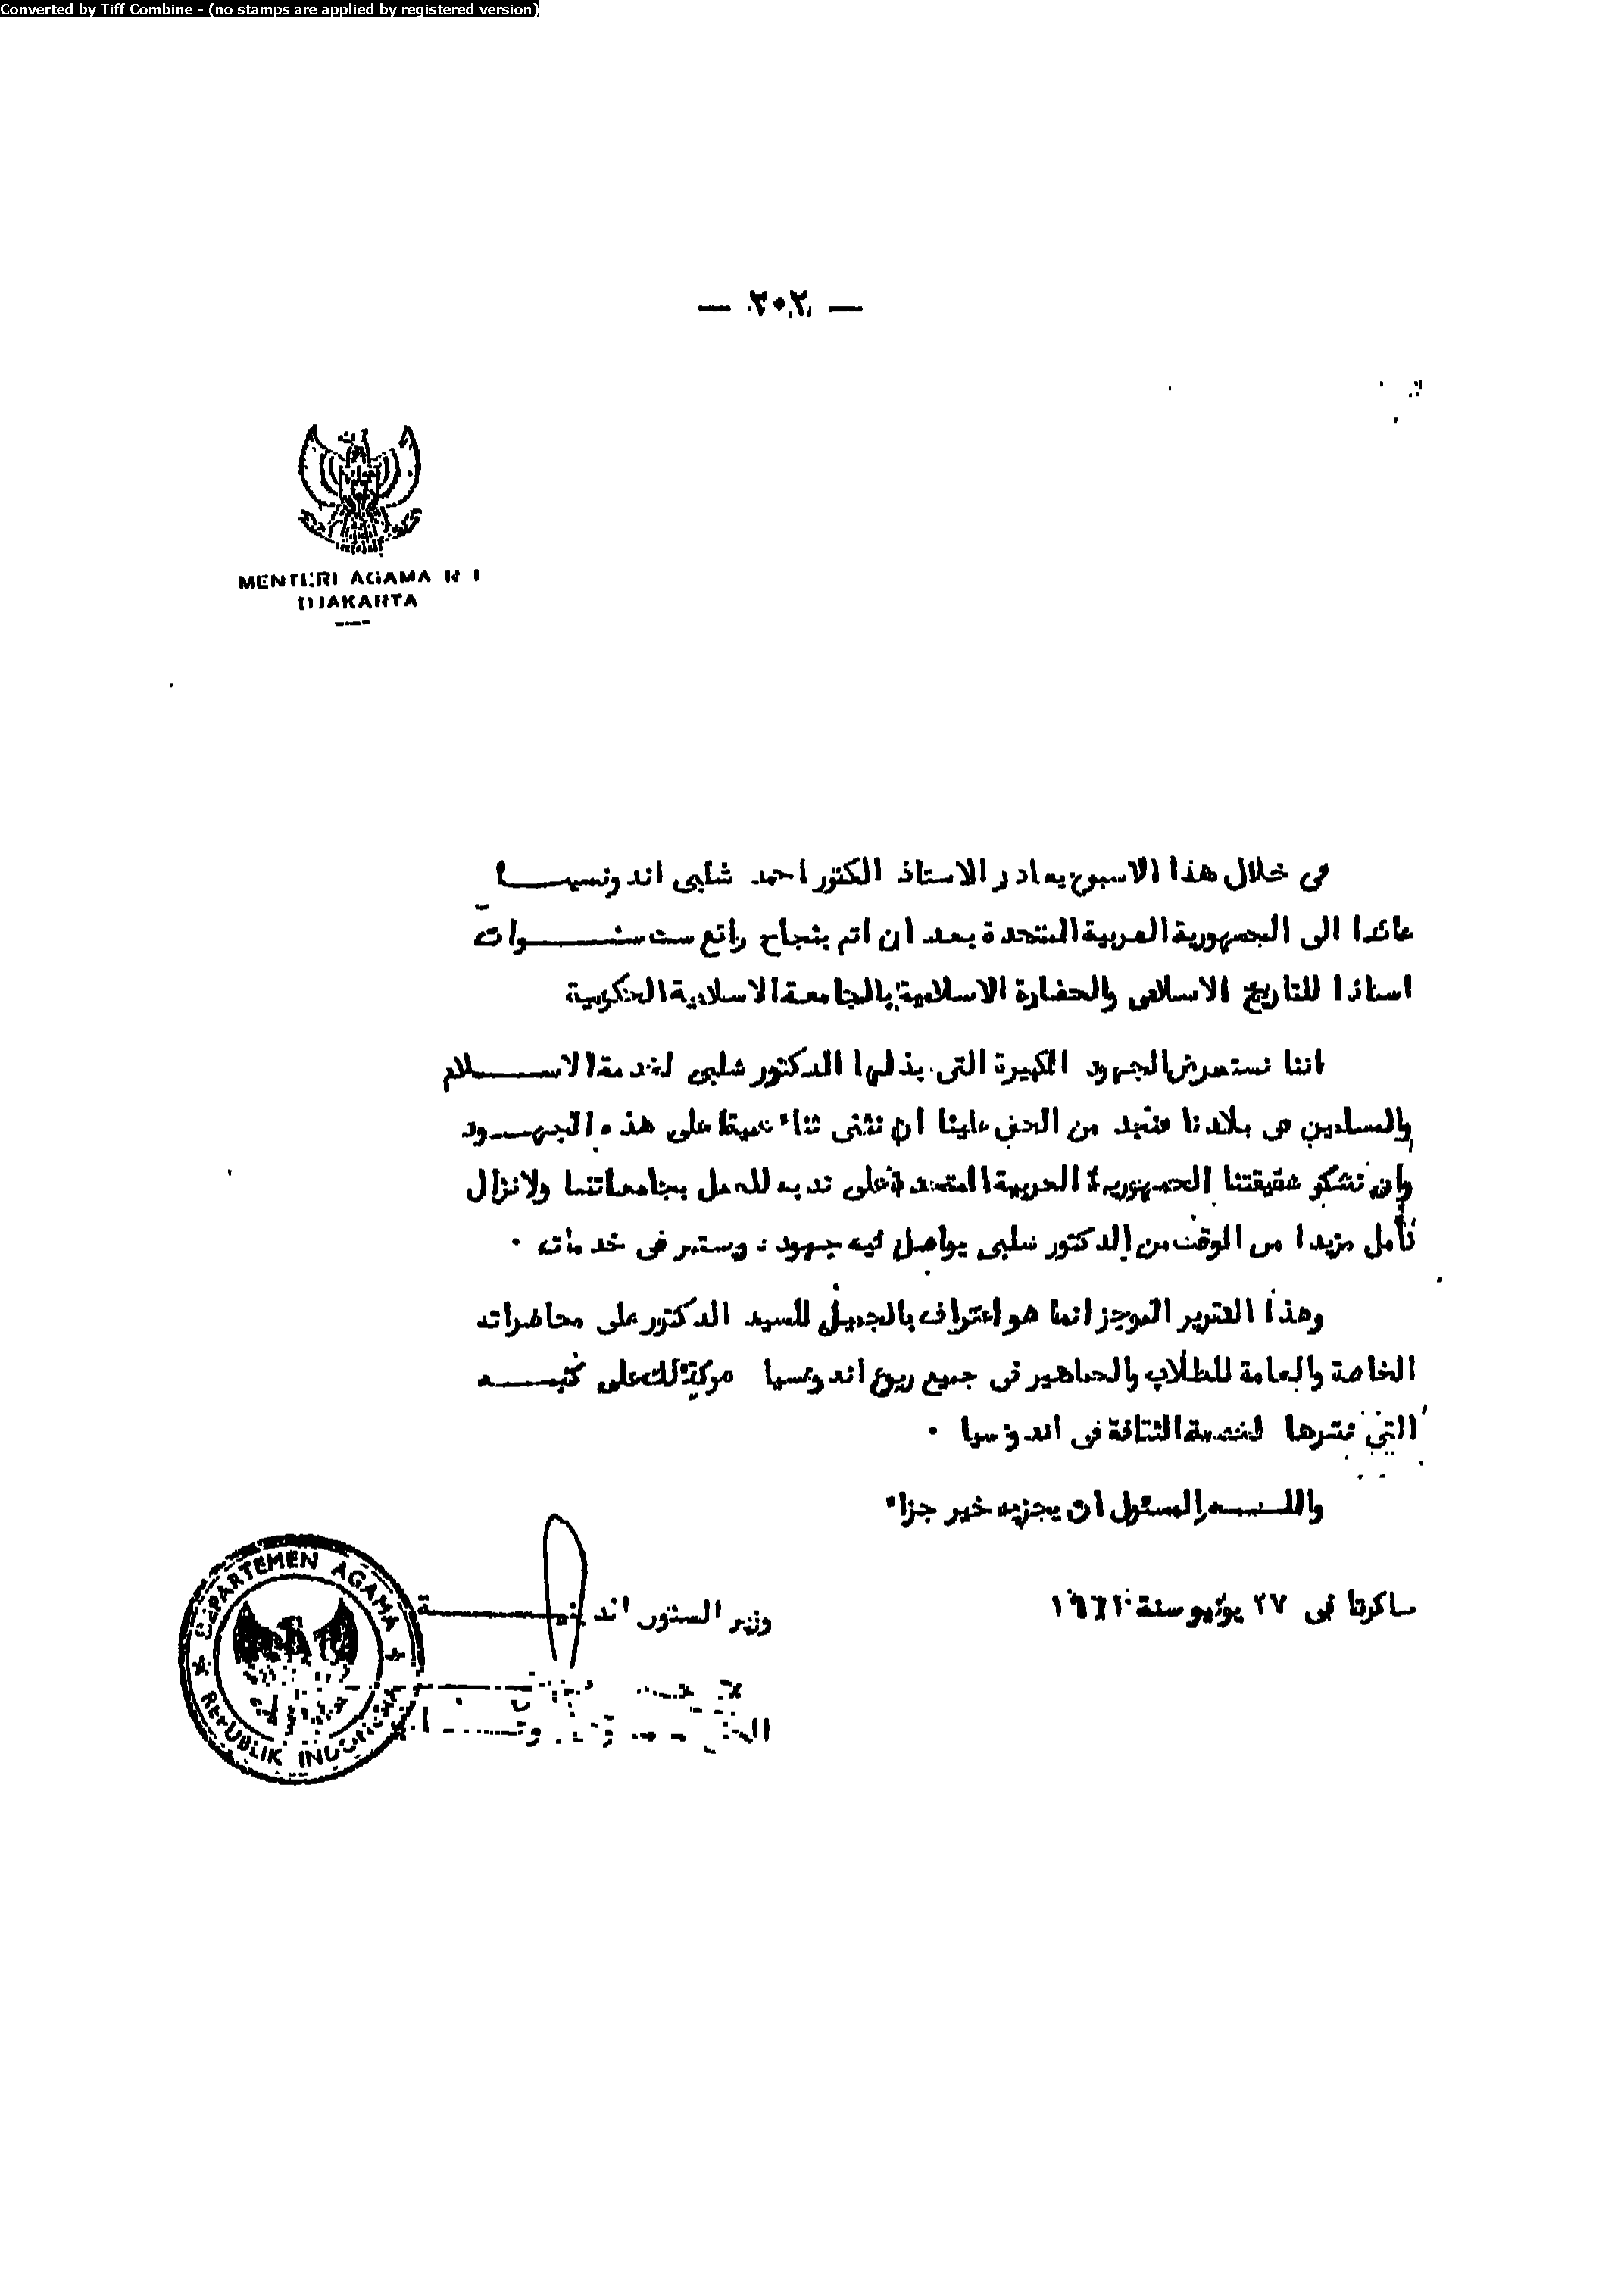 Converted by Tiff Combine - (no stamps are applied by registered version)
— ٢٠٢ —
MENTERI AGAMA R I
DJAKARTA
فى خلال هذا الاسبوع يغادر الاستاذ الكتور احمد شلبى اندونسيا
عائدا الى الجمهورية العربية المتحدة بعد ان اتم بنجاح رائع ست سنوات
استاذا للتاريخ الاسلامى والحضارة الاسلامية بالجامعة الاسلامية الحكومية
اننا نستعرض الجهود الكبيرة التى بذلها الدكتور شلبى لخدمة الاسلام
والمسلمين فى بلادنا فنجد من الحق علينا ان نثنى ثناء عميقا على هذه الجهود
وان نشكر شقيقتنا الجمهورية العربية المتحدة على ندبه للعمل بجامعاتنا ولانزال
نأمل مزيدا من الوقت من الدكتور شلبى يواصل فيه جهوده ويستمر فى خدماته ٠
وهذا التقرير الموجز انما هو اعتراف بالجميل للسيد الدكتور على محاضراته
الخاصة والعامة للطلاب والجماهير فى جميع ربوع اندونسيا وكذلك على كتبه
التى نشرها لخدمة الثقافة فى اندونسيا ٠
واللــه المسئول ان يجزيه خير جزاء
جاكرتا فى ٢٧ يونيو سنة ١٩٦١
وزير الشئون
DEPARTEMEN AGAMA
REPUBLIK INDONESIA